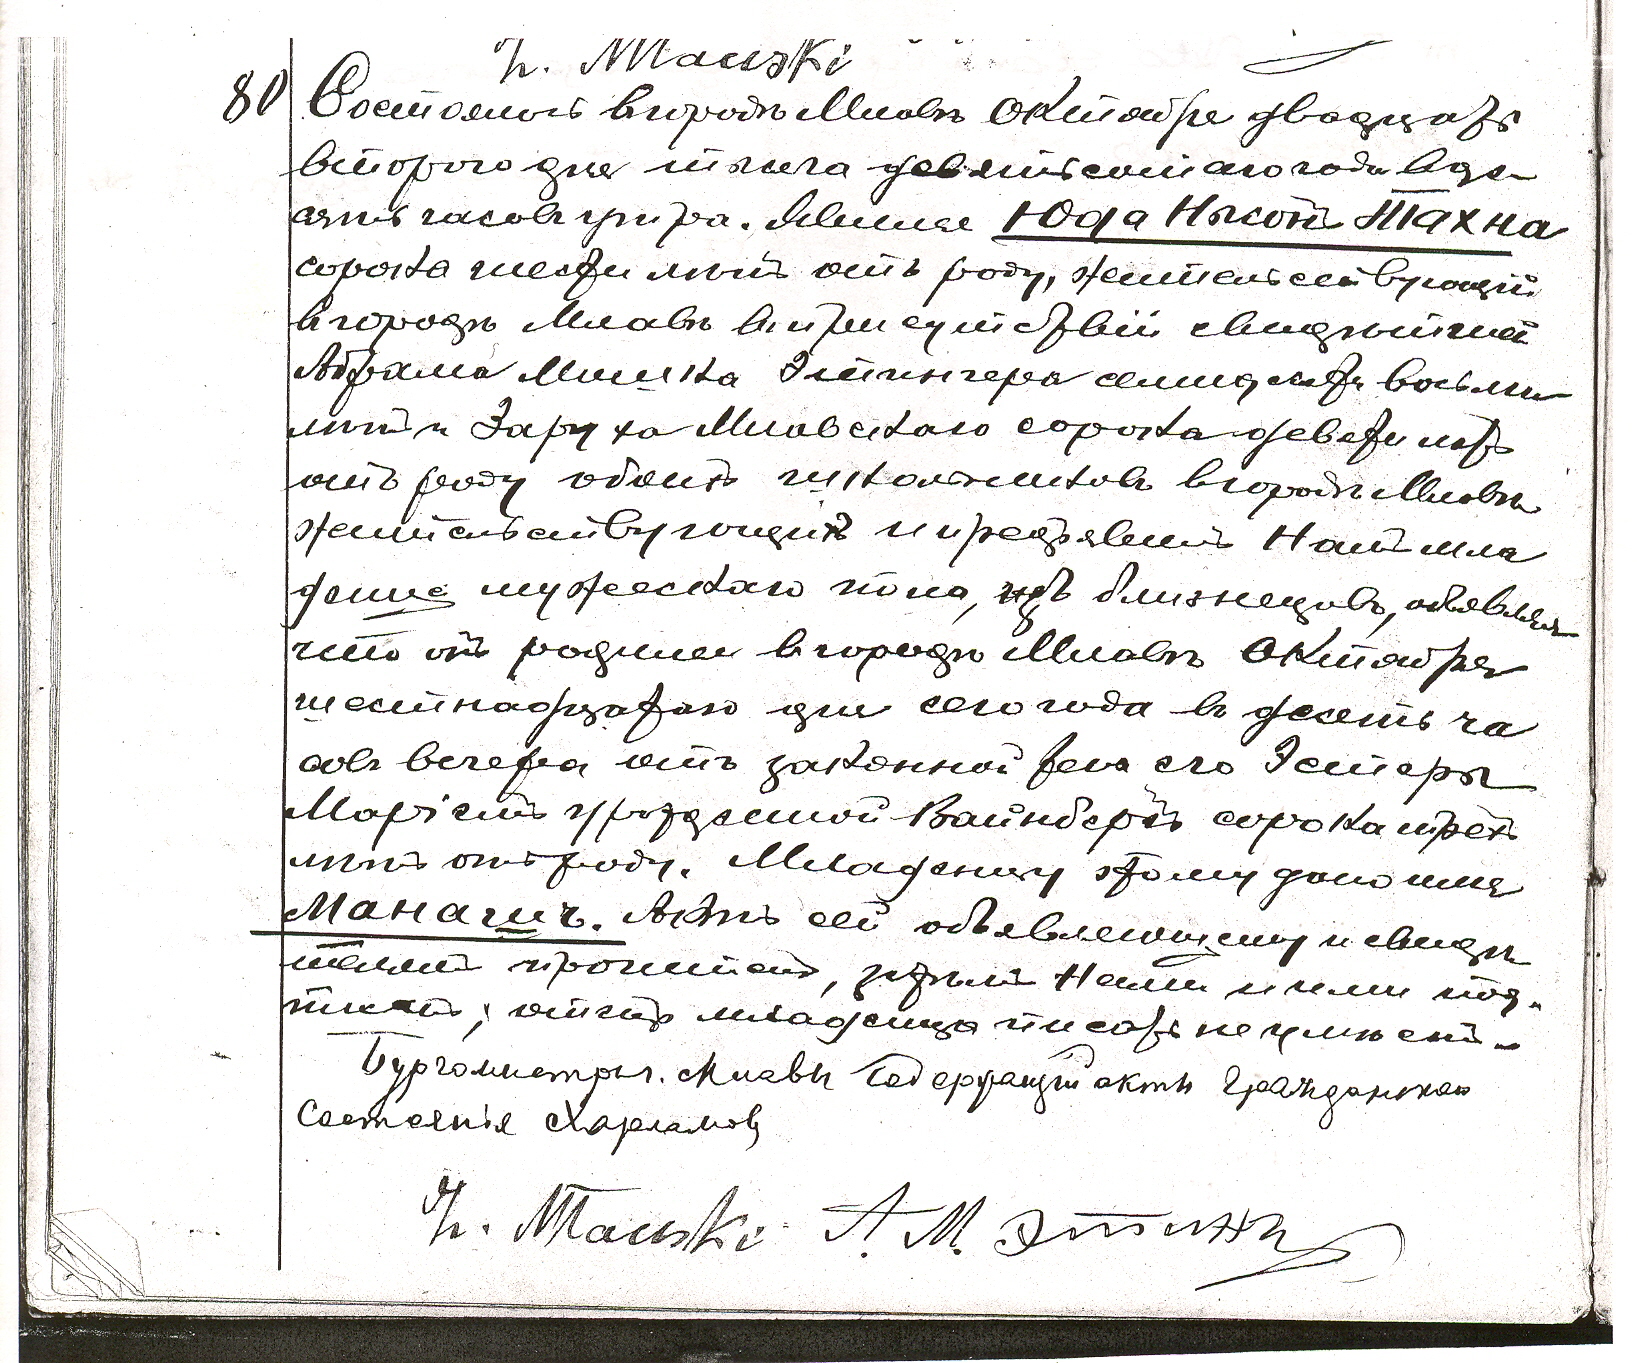 Млавski
80 Состоялось въ городѣ Млавѣ Октября двадцать
втораго дня тысяча девятьсотаго года въ де-
сять часовъ утра. Явился Юда Нысонъ Тахна
сорока шести лѣтъ отъ роду, жительствующій
въ городѣ Млавѣ въ присутствіи свидѣтелей
Абрама Мошка Этингера семидесяти восьми
лѣтъ и Млавскаго сорока девяти лѣтъ
отъ роду обоихъ школьниковъ въ городѣ Млавѣ
жительствующихъ и предъявилъ Намъ мла
денца мужескаго пола, изъ близнецовъ, объявляя
что онъ родился въ городѣ Млавѣ Октября
шестнадцатаго дня сего года въ десять ча
совъ вечера отъ законной жены его Эстеры
урожденной Вайнбергъ сорока трехъ
лѣтъ отъ роду. Младенцу этому дано имя
Акть сей объявляющему и свидѣ
телямъ прочитанъ, затѣмъ Нами и ими под-
писанъ; отецъ младенца писать не умѣетъ.
Бургомистръ г. Млавы Содержащій акты Гражданскаго
Состоянія Харламовъ
Млавski А. М. Этинг